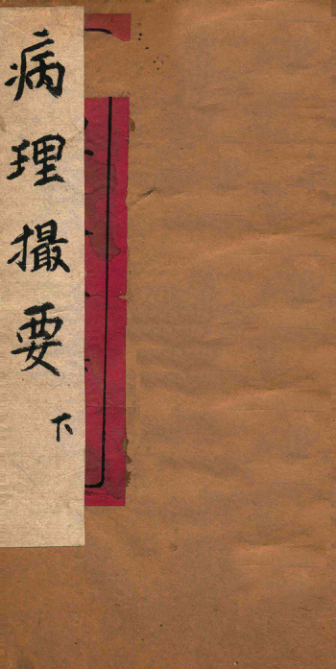 病理撮要
下